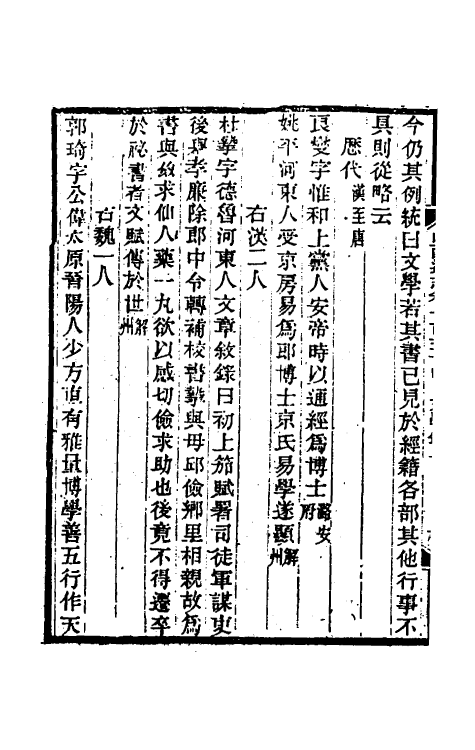 今仍其例統曰文學若其書已見於經籍各部其他行事不
具則從略云
歷代漢至唐
良燮字惟和上黨人安帝時以通經爲博士潞安府
姚平河東人受京房易爲郎博士京氏易學遂顯解州
右漢二人
杜摯字德魯河東人文章敘錄曰初上笳賦署司徒軍謀吏
後舉孝廉除郎中令轉補校書摯與毋邱儉鄉里相親故爲
書與儉求仙人藥一丸欲以感切儉求助也後竟不得遷卒
於祕書著文賦傳於世解州
右魏一人
郭琦字公偉太原晉陽人少方直有雅量博學善五行作天